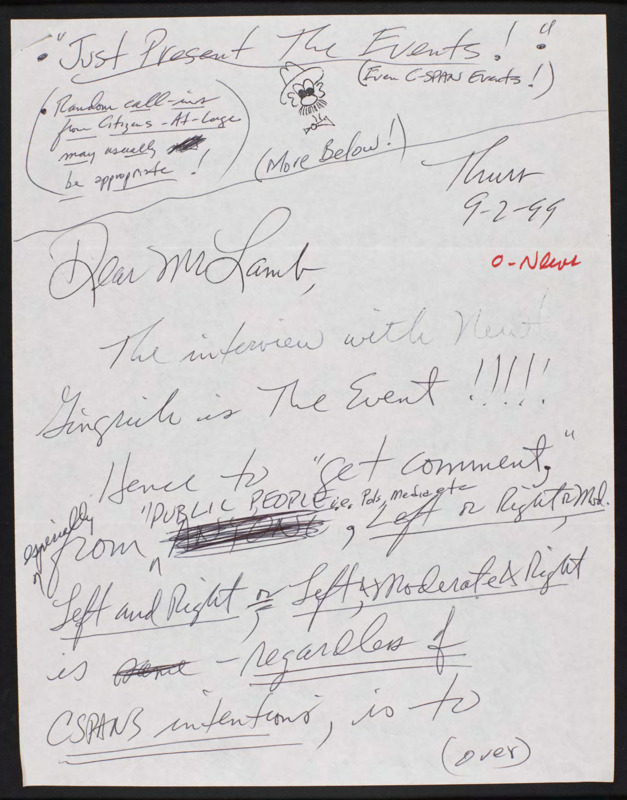 • "Just Present The Events!"
(Even C-SPAN Events!)
• Random call-ins
from Citizens-At-Large
may usually
be appropriate!
(More Below!)
Thurs
9-2-99
Dear Mr Lamb,
O-News
The interview with Newt
Gingrich is The Event !!!!!
Hence to "get comment,"
especially from "PUBLIC PEOPLE i.e. Pols, Media etc, Left or Right or Mod.
Left and Right or Left & Moderate & Right
is - regardless of
CSPANS intentions, is to
(over)